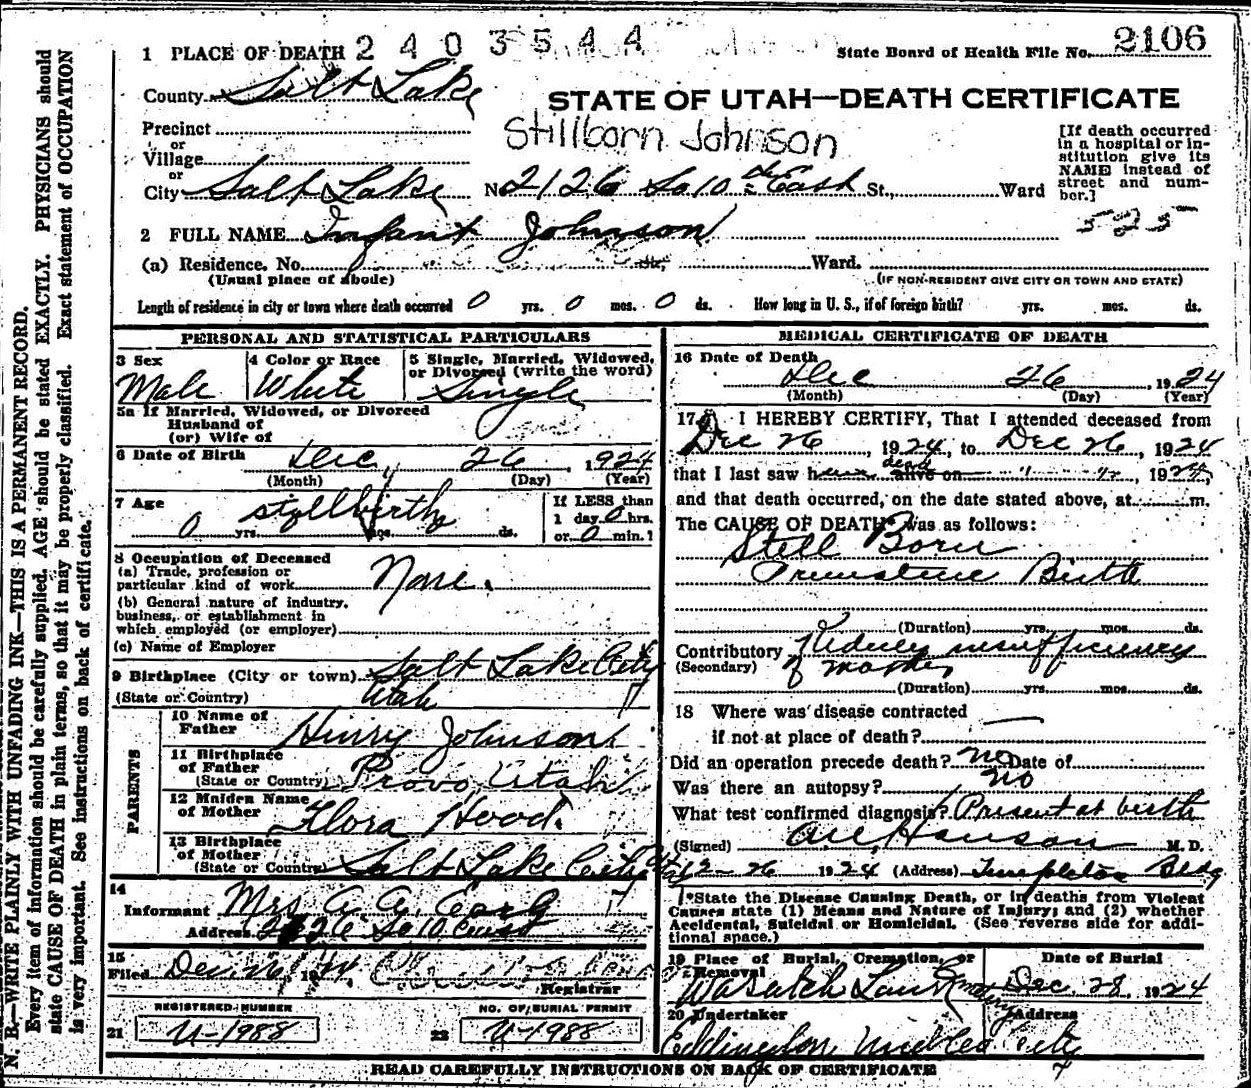 1 PLACE OF DEATH 2403544
State Board of Health File No. 2106
County Salt Lake
STATE OF UTAH—DEATH CERTIFICATE
Precinct
Stillborn Johnson
[If death occurred in a hospital or institution give its NAME instead of street and number.]
or
Village
or
City Salt Lake No 2126 So 10 th East St, Ward
525
2 FULL NAME Infant Johnson
(a) Residence. No. St, Ward.
(Usual place of abode) (IF NON-RESIDENT GIVE CITY OR TOWN AND STATE)
Length of residence in city or town where death occurred 0 yrs. 0 mos. 0 ds. How long in U. S., if of foreign birth? yrs. mos. ds.
PERSONAL AND STATISTICAL PARTICULARS
3 Sex Male
4 Color or Race White
5 Single, Married, Widowed, or Divorced (write the word) Single
5a If Married, Widowed, or Divorced
Husband of
(or) Wife of
6 Date of Birth Dec, 26 1924
(Month) (Day) (Year)
7 Age stillbirth
0 yrs. mos. ds.
If LESS than
1 day 0 hrs.
or 0 min.?
8 Occupation of Deceased
(a) Trade, profession or
particular kind of work None.
(b) General nature of industry,
business, or establishment in
which employed (or employer)
(c) Name of Employer
9 Birthplace (City or town) Salt Lake City
(State or Country) Utah
PARENTS
10 Name of Father Henry Johnson
11 Birthplace of Father
(State or Country) Provo, Utah
12 Maiden Name of Mother Flora Hood.
13 Birthplace of Mother
(State or Country) Salt Lake City Utah
14
Informant Mrs
Address 2126 So 10 East
15
Filed Dec. 26, 1924
Registrar
REGISTERED NUMBER
21 U-1988
NO. OF BURIAL PERMIT
22 U-1988
MEDICAL CERTIFICATE OF DEATH
16 Date of Death
Dec 26, 1924
(Month) (Day) (Year)
17 I HEREBY CERTIFY, That I attended deceased from
Dec 26, 1924, to Dec 26, 1924
that I last saw him dead alive on " ", 1924,
and that death occurred, on the date stated above, at m.
The CAUSE OF DEATH* was as follows:
Still Born
Premature Birth
(Duration) yrs. mos. ds.
Contributory Kidney insufficiency
(Secondary) of mother
(Duration) yrs. mos. ds.
18 Where was disease contracted
if not at place of death?
Did an operation precede death? no Date of
Was there an autopsy? no
What test confirmed diagnosis? Present at birth
(Signed) Hanson M. D.
12-26 1924 (Address) Templeton Bldg
*State the Disease Causing Death, or in deaths from Violent
Causes state (1) Means and Nature of Injury; and (2) whether
Accidental, Suicidal or Homicidal. (See reverse side for addi-
tional space.)
19 Place of Burial, Cremation, or Removal
Wasatch Lawn
Date of Burial
Dec. 28, 1924
20 Undertaker
Address
City
READ CAREFULLY INSTRUCTIONS ON BACK OF CERTIFICATE
N. B.—WRITE PLAINLY WITH UNFADING INK—THIS IS A PERMANENT RECORD.
Every item of information should be carefully supplied. AGE should be stated EXACTLY. PHYSICIANS should
state CAUSE OF DEATH in plain terms, so that it may be properly classified. Exact statement of OCCUPATION
is very important. See instructions on back of certificate.